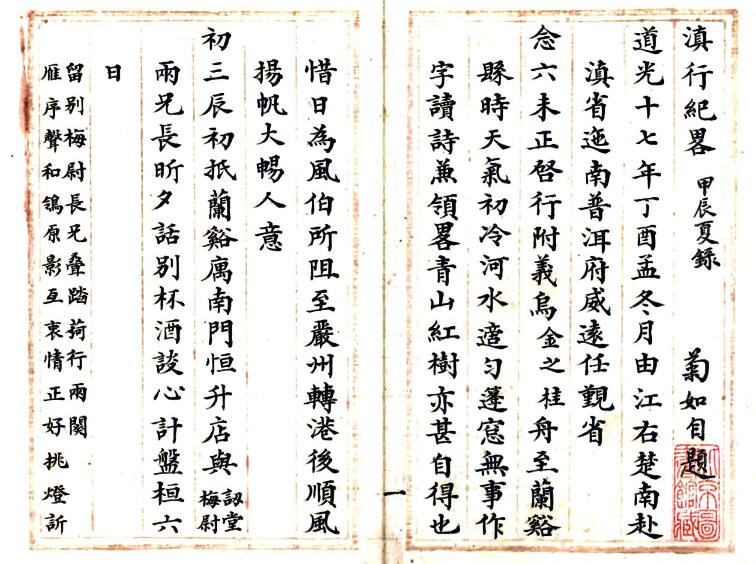 滇行紀畧 甲辰夏錄 菊如自題
道光十七年丁酉孟冬月由江右楚南赴
滇省迤南普洱府威遠任覲省
念六未正啓行附義烏金之桂舟至蘭谿
縣時天氣初冷河水適勻蓬窓無事作
字讀詩兼領畧青山紅樹亦甚自得也
一
惜日為風伯所阻至嚴州轉港後順風
揚帆大暢人意
初三辰初抵蘭谿寓南門恒升店與訒堂梅尉
兩兄長昕夕話別杯酒談心計盤桓六
日
留别梅尉長兄叠踏莎行兩闋
雁序聲和鴒原影互衷情正好挑燈訴